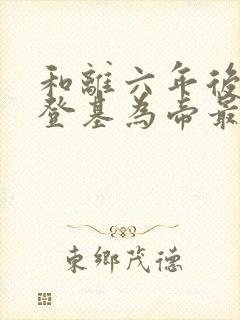 和離六年後
登基為帝最
東鄉茂德